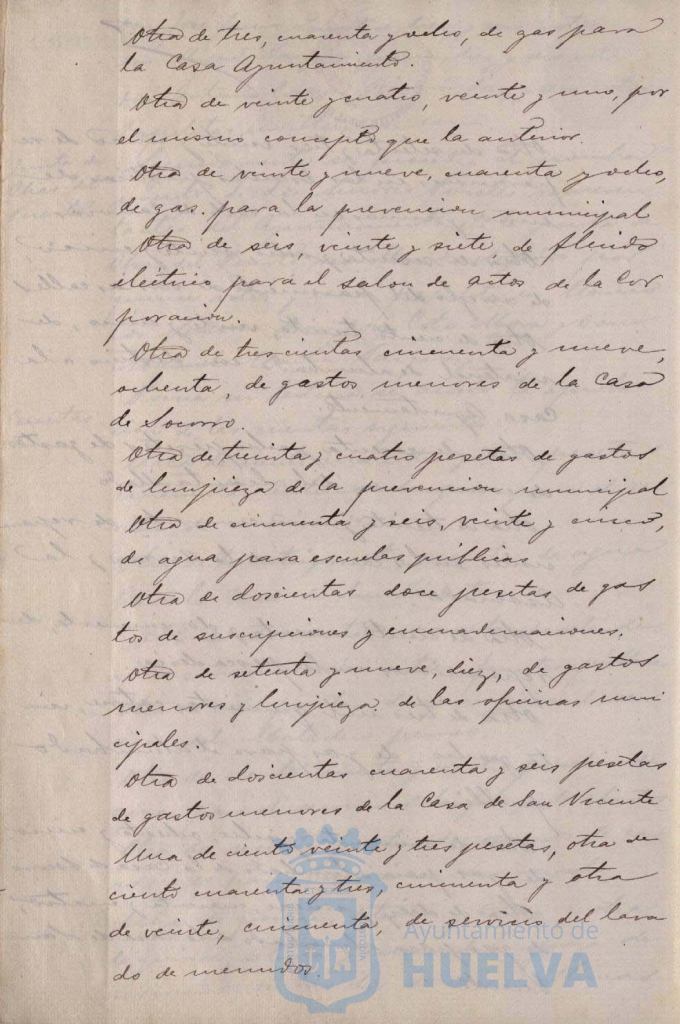 Otra de tres, cuarenta y ocho, de gas para
la Casa Ayuntamiento.
Otra de veinte y cuatro, veinte y uno, por
el mismo concepto que la anterior.
Otra de veinte y nueve, cuarenta y ocho,
de gas para la prevencion municipal
Otra de seis, veinte y siete, de fluido
eléctrico para el salon de actos de la Cor
poracion.
Otra de trescientas cincuenta y nueve,
ochenta, de gastos menores de la Casa
de Socorro.
Otra de treinta y cuatro pesetas de gastos
de limpieza de la prevencion municipal
Otra de cincuenta y seis, veinte y cinco,
de agua para escuelas públicas
Otra de doscientas doce pesetas de gas
tos de suscripciones y encuadernaciones.
Otra de setenta y nueve, diez, de gastos
menores y limpieza de las oficinas muni
cipales.
Otra de doscientas cuarenta y seis pesetas
de gastos menores de la Casa de San Vicente
Una de ciento veinte y tres pesetas, otra de
ciento cuarenta y tres, cincuenta y otra
de veinte, cincuenta, de servicio del lava
do de menudos.
Ayuntamiento de
HUELVA